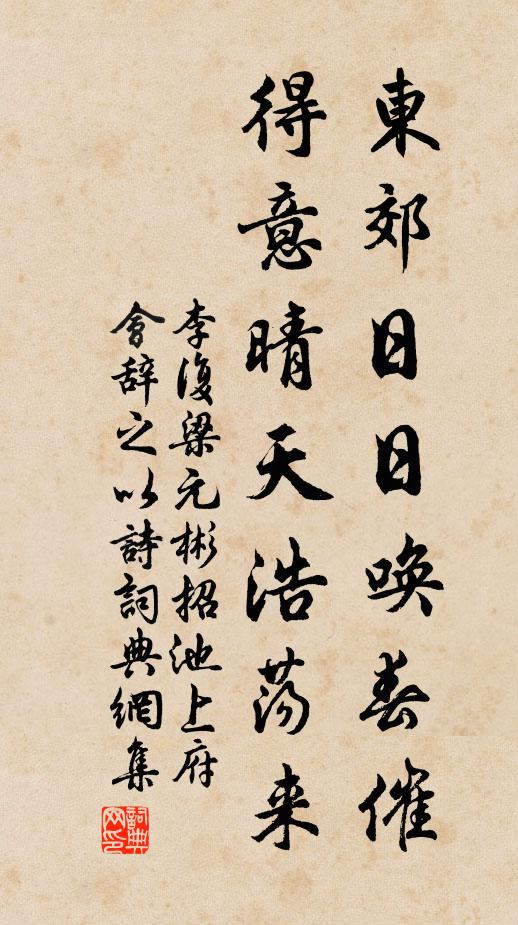 東郊日日喚春催
得意晴天浩蕩来
李復梁元彬招池上府
會辞之以詩詞典網集
詞典网印